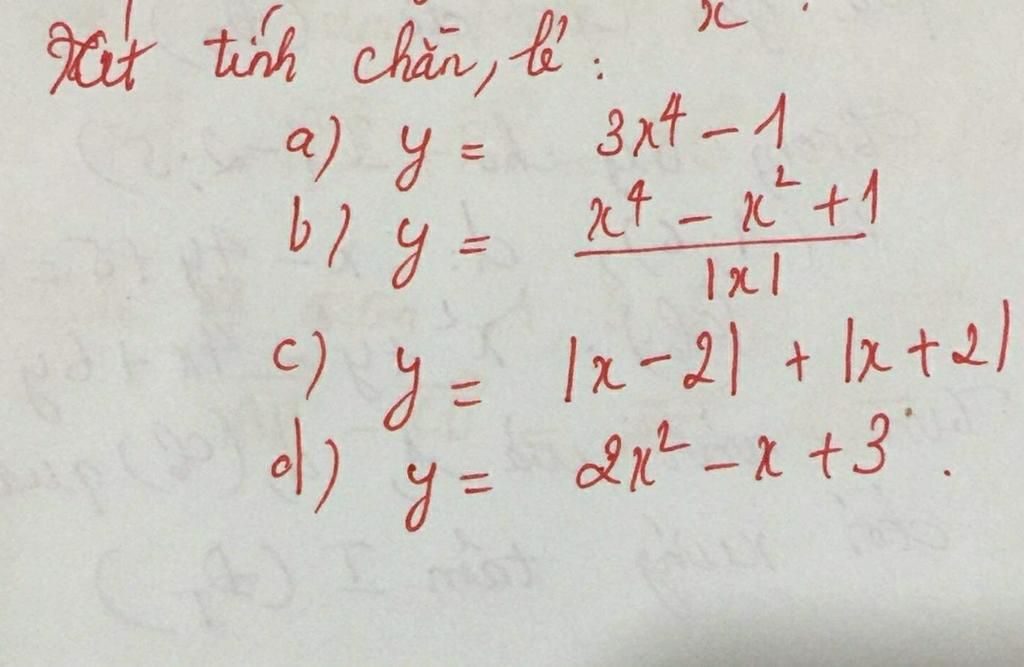 x
Xét tính chẵn, lẻ:
a) y = 3x⁴ - 1
b) y = (x⁴ - x² + 1) / |x|
c) y = |x - 2| + |x + 2|
d) y = 2x² - x + 3.